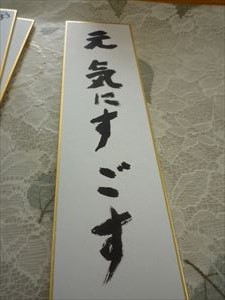 元気にすごす